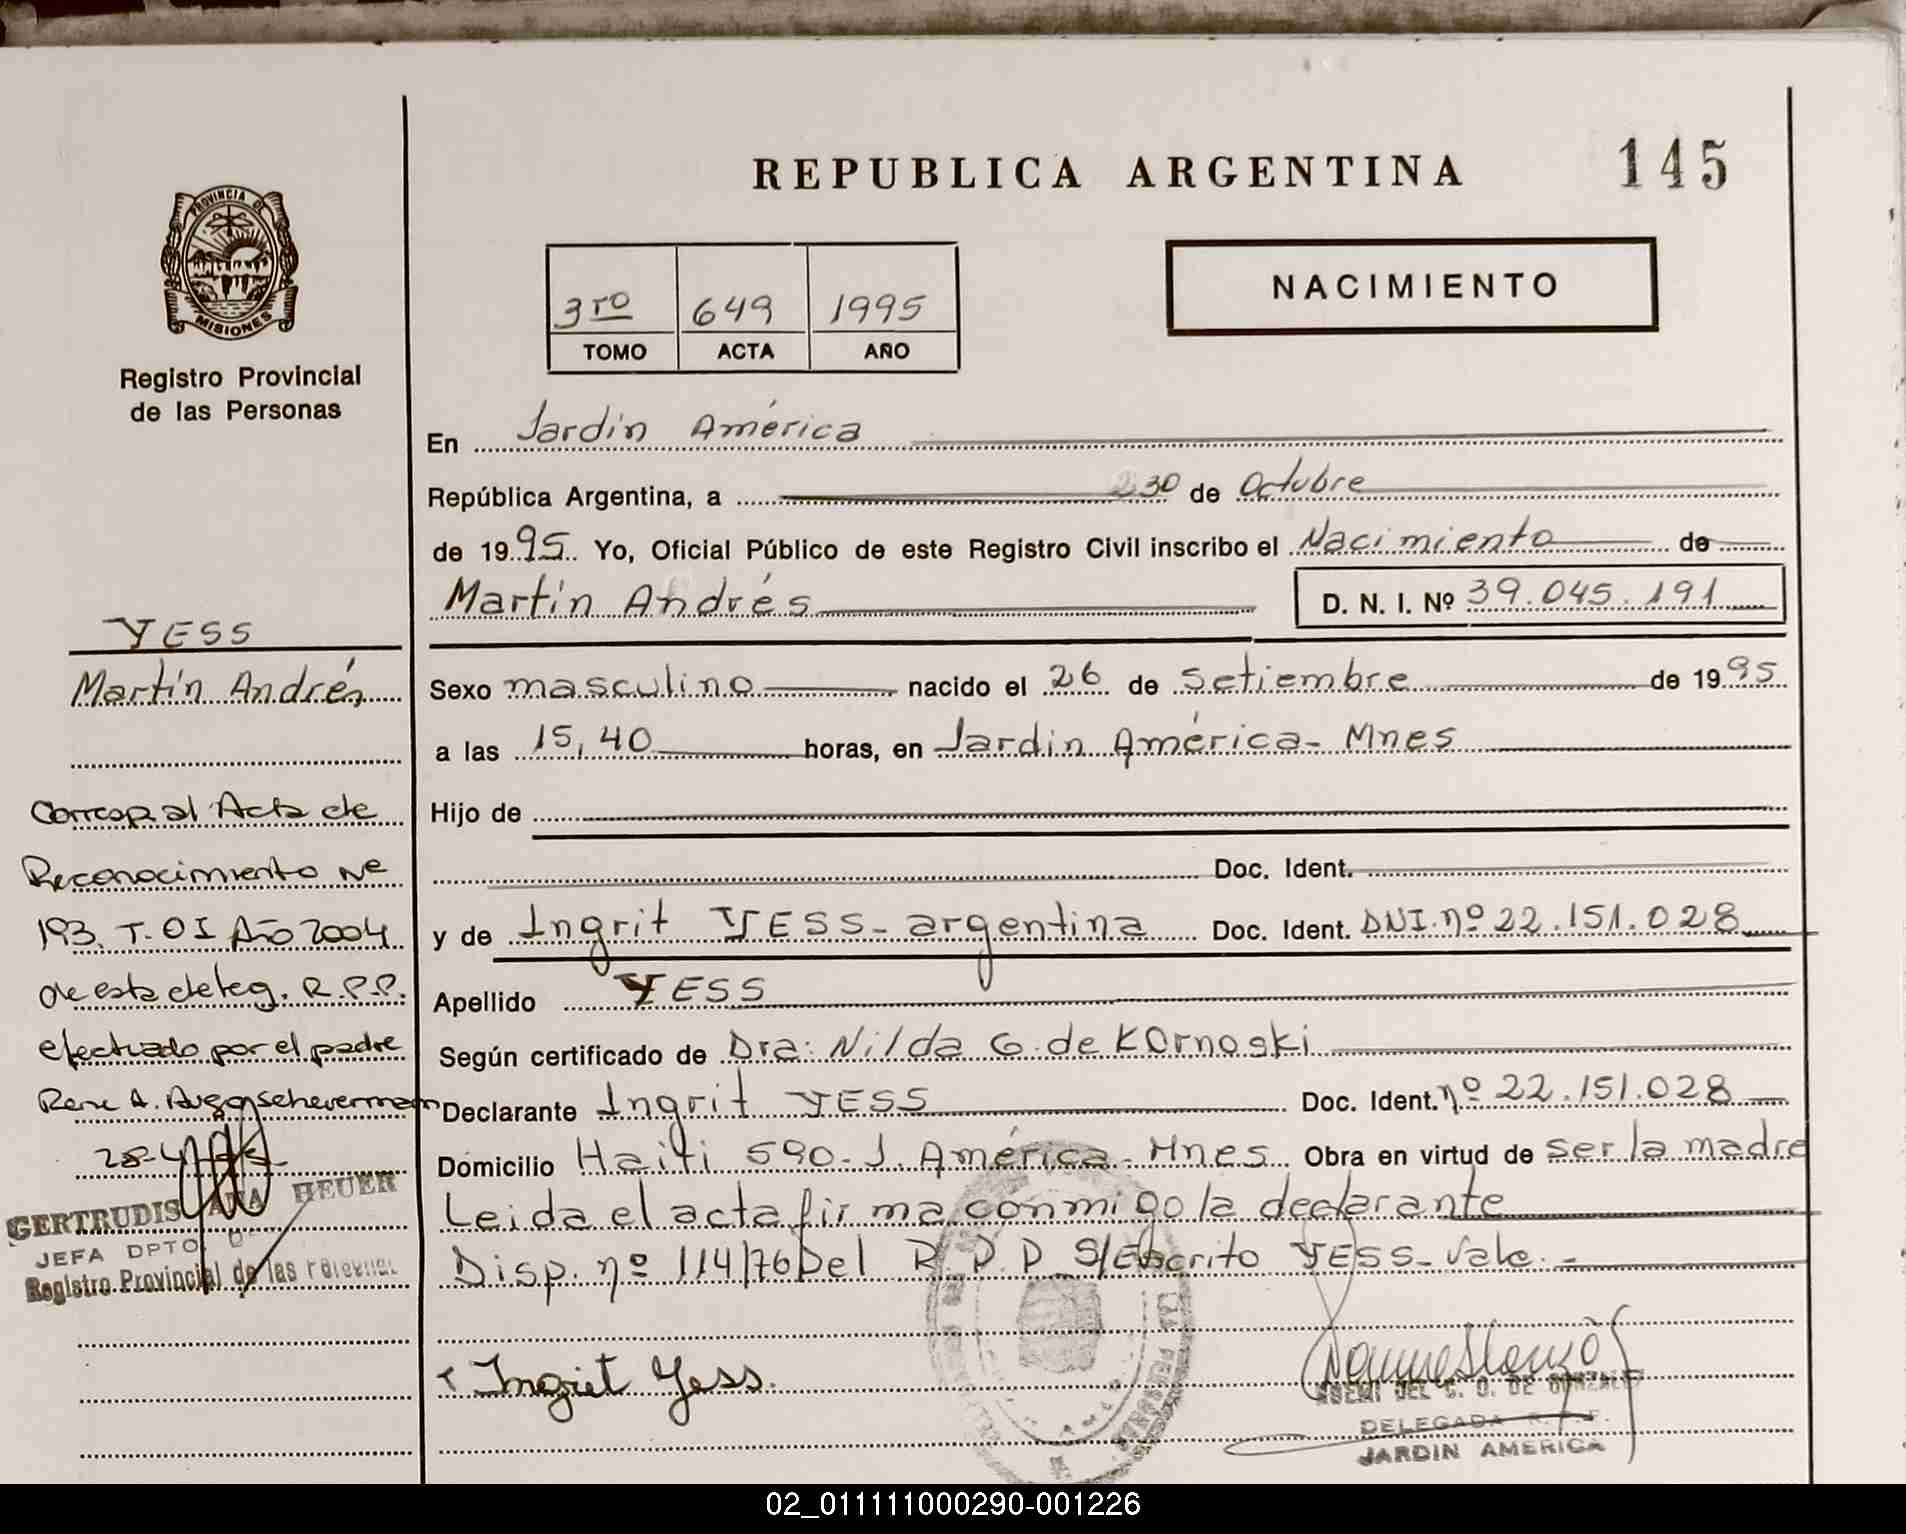 REPUBLICA ARGENTINA
145
PROVINCIA DE
MISIONES
Registro Provincial
de las Personas
3ro 649 1995
TOMO ACTA AÑO
NACIMIENTO
En Jardín América
República Argentina, a 30 de Octubre
de 1995. Yo, Oficial Público de este Registro Civil inscribo el Nacimiento de
Martín Andrés
D. N. I. Nº 39.045.191
Sexo masculino nacido el 26 de Setiembre de 1995
a las 15,40 horas, en Jardín América - Mnes
Hijo de
Doc. Ident.
y de Ingrit YESS - argentina Doc. Ident. DNI. nº 22.151.028
Apellido YESS
Según certificado de Dra: Nilda G. de Kornoski
Declarante Ingrit YESS Doc. Ident. nº 22.151.028
Domicilio Haití 590 - J. América - Mnes Obra en virtud de ser la madre
Leida el acta firma conmigo la declarante
Disp. nº 114/76 Del R.P.P. S/Escrito YESS - Vale. -
Ingrit Yess.
DELEGADA R.P.P.
JARDIN AMERICA
YESS
Martín Andrés
Corresp. al Acta de
Reconocimiento Nº
193. T. 01 Año 2004
de esta deleg. R.P.P.
efectuado por el padre
Rene A.
GERTRUDIS ANA HEUER
JEFA DPTO.
Registro Provincial de las
02_011111000290-001226